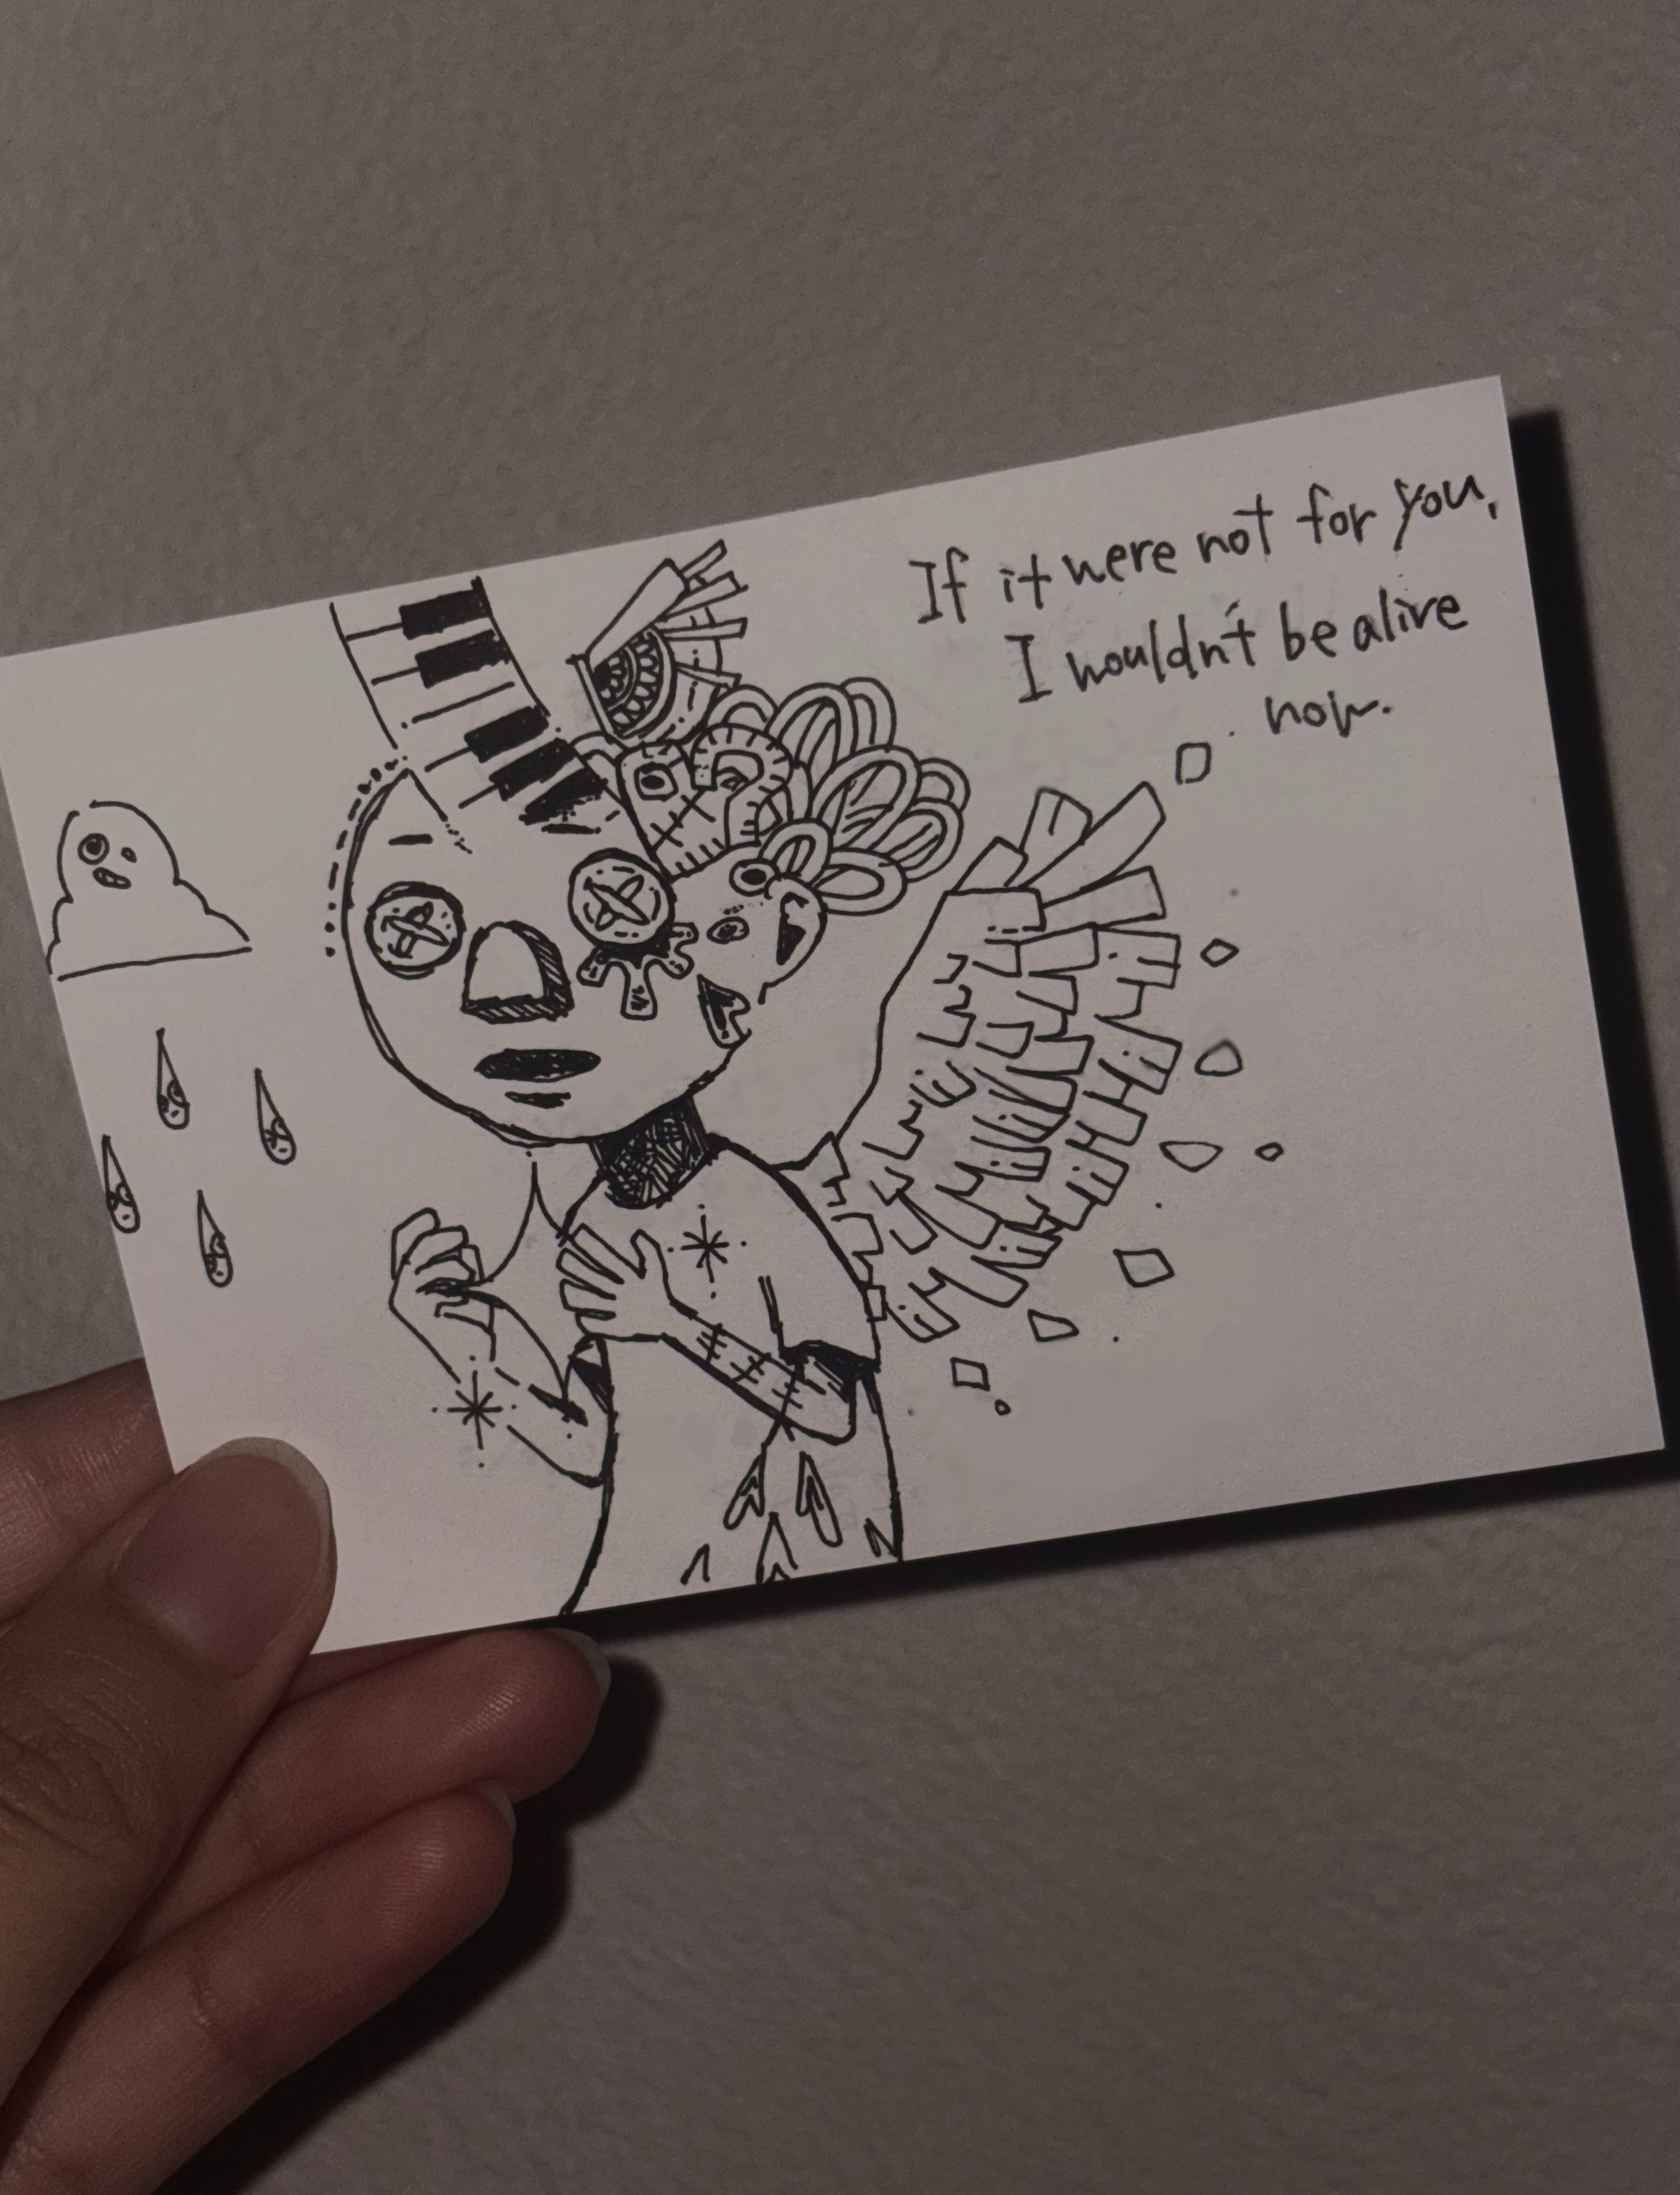 If it were not for you,
I wouldn't be alive
now.